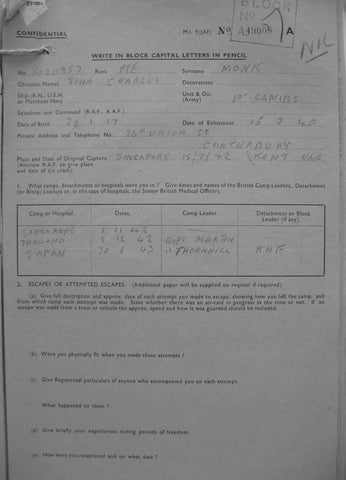 BLOCK
No
CONFIDENTIAL
M.I. 9/JAP/ No A49068 A
Nil
WRITE IN BLOCK CAPITAL LETTERS IN PENCIL
No. Rank PTE Surname MONK
Christian Names JOHN CHARLES Decorations
Ship (R.N., U.S.N. or Merchant Navy Unit & Div. (Army) 1ST CAMBS
Squadron and Command (R.A.F., A.A.F.)
Date of Birth Date of Enlistment 15 3 40
Private Address and Telephone No. UNION ST
CANTERBURY
Place and Date of Original Capture SINGAPORE 15/2/42 KENT ENG
(Aircrew R.A.F. to give place
and date of a/c crash).
1. What camps, detachments or hospitals were you in ? Give dates and names of the British Camp Leaders, Detachment
(or Block) Leaders or, in the case of hospitals, the Senior British Medical Officers.
Camp or Hospital. Dates. Camp Leader. Detachment or Block
Leader (if any).
SINGAPORE 7 11 42
THAILAND 9 12 42 CAPT MARTIN
JAPAN 20 6 43 " THORNHILL RNF
2. ESCAPES OR ATTEMPTED ESCAPES. (Additional paper will be supplied on request if required).
(a) Give full description and approx. date of each attempt you made to escape, showing how you left the camp, and
from which camp each attempt was made. State whether there was an air-raid in progress at the time or not. If an
escape was made from a train or vehicle the approx. speed and how it was guarded should be included.
(b) Were you physically fit when you made these attempts ?
(c) Give Regimental particulars of anyone who accompanied you on each attempt.
What happened to them ?
(d) Give briefly your experiences during periods of freedom.
(e) How were you recaptured and on what date ?